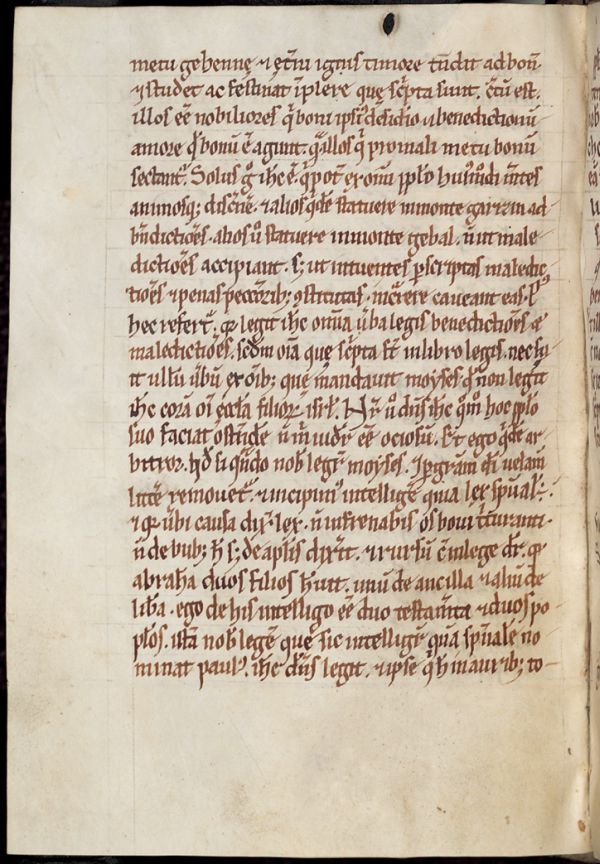 metu gehennę ⁊ et̄ni ignis timore tendit ad bonū
⁊ studet ac festinat īplere que sc̄pta sunt. c̄tū est.
illos eē nobiliores q̄ boni ipsi᷒ desidio ⁊ benedictionū
amore qđ bonū ē agunt. quā illos q̄ pro mali metu bonū
sectant᷒. Solus g̊ ih̄c ē. q̄ pot̄ ex om̄i pp̄lo hui᷒modi m̄tes
animosq; disc̄ne. ⁊ alios qđe statuere in monte garizin ad
b̄ndictiōes. alios ů statuere in monte gebal. n̄ ut male
dictiōes accipiant. s; ut intuentes p̄scriptas maledic
tiōes ⁊ penas peccātorib; ↄstitutas. incr̄rere caueant eas.
hec refert᷒. qđ legit ih̄c omīa ůba legis benedictiōes ⁊
maledictiōes. scđm oīa que sc̄pta st̄ in libro legis. nec fu
it ullū ůbū ex oīb; que mandauit moyses qđ non legit
ih̄c corā oī eccl̄a filior̄ isrl̄. Nr̄ ů dn̄s ih̄c q̊m̊ hoc pp̄lo
suo faciat ostēde n̄ m̄ uidet᷒ eē ociosū. Et ego qđe ar
bitror. qđ si qn̄do nob̄ legit᷒ moyses. ⁊ p̄ gr̄am dn̄i uelam̄
litt̄e remouet᷒. ⁊ incipim᷒ intelliḡe quia lex sp̄ual̄ ē.
⁊ qđ ůbi causa dix̄ lex. n̄ infrenabis os boui t̄turanti.
n̄ de bub; h̄ s; de aplīs dixerit. ⁊ rursū cū in lege dr̄. qđ
abrahā duos filios h̄uit. unū de ancilla ⁊ aliū de
lib̄a. ego de his intelligo eē duo testam̄ta ⁊ duos po
pl̄os. istā nob̄ legē que sic intelligit᷒ quā sp̄ualē no
minat paul᷒. ih̄c dn̄s legit. ⁊ ipse q̄ h̄ in aurib; to-